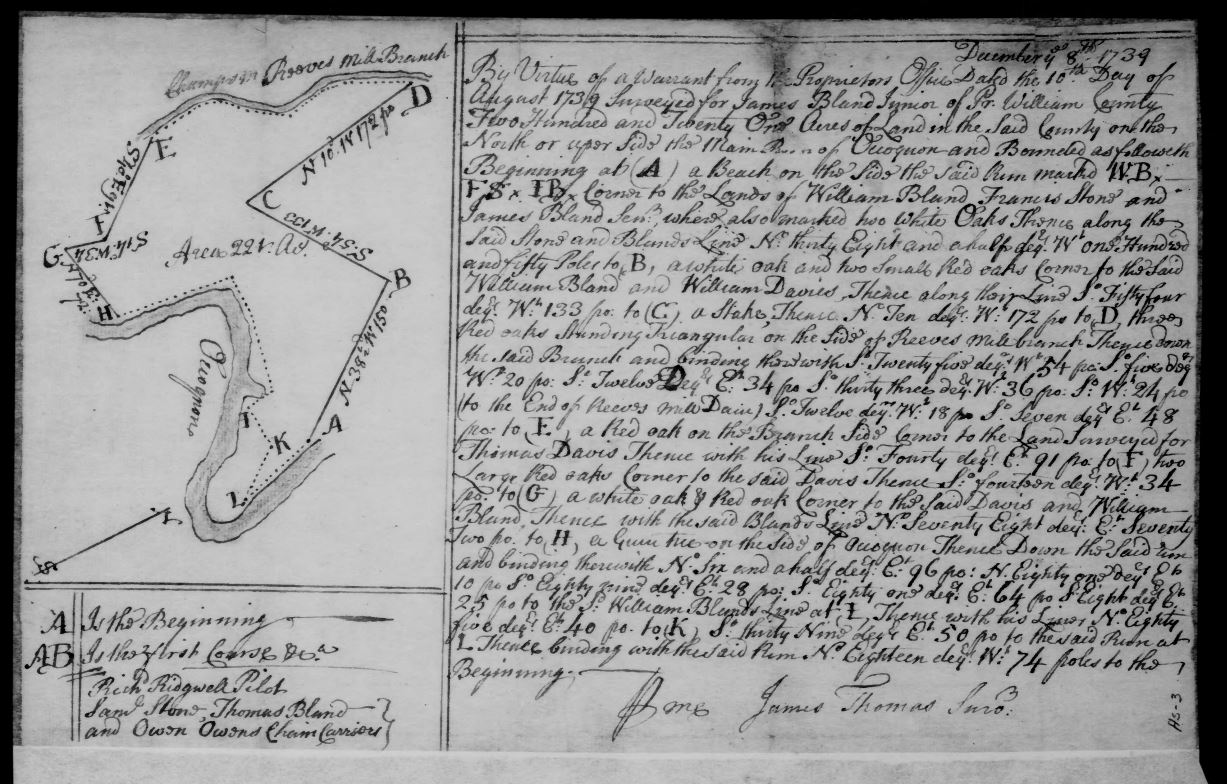 Decembr ye 8th 1739
By Virtue of a Warrant from the Proprietors Office Dated the 10th Day of
August 1739 Surveyed for James Bland Junior of Pr. William County
Two Hundred and Twenty One Acres of Land in the Said County on the
North or uper Side the Main Run of Ocoquon and Bounded as followeth
Beginning at (A) a Beach on the Side the Said Run markd WB x
FS x IB x Corner to the Lands of William Bland Francis Stone and
James Bland Senr. where also marked two White Oaks Thence along the
Said Stone and Blands Line No. thirty Eight and a half degr. Wt. one Hundred
and fifty Poles to B, a white oak and two Small Red oaks Corner to the Said
William Bland and William Davies, Thence along their Line So. Fifty four
degr. Wt. 133 po. to (C) a Stake, Thence No. Ten degr. Wt. 172 po to D, three
Red oaks Standing Triangular on the Side of Reeves mill branch Thence down
the said Branch and binding therewith So. Twenty five degr. Wt 54 po: So. five degr
Wt. 20 po. So. Twelve Degr. Et. 34 po So. thirty three degr. W. 36 po. So. Wt. 24 po
(to the End of Reeves mill Dam) So. Twelve degr. Wt. 18 po So. Seven degr Et. 48
po. to (E), a Red oak on the Branch Side Corner to the Land Surveyed for
Thomas Davis Thence with his Line So. Fourty degr. Et. 91 po. to (F) two
Large Red oaks Corner to the said Davis Thence So. Fourteen degr. Wt. 34
po. to (G) a white oak & Red oak Corner to the Said Davis and William
Bland, Thence with the said Blands Line No. Seventy Eight degr. Et. Seventy
Two po. to (H), a Gum tree on the Side of Ocoquon Thence Down the Said run
and binding therewith No. Six and a half degr. Et. 96 po: N. Eighty one degr Et
10 po So. Eighty nine degr. Et. 28 po: So. Eighty one degr. Et. 64 po So. Eight degr Et.
25 po to the Sd. William Blands Line at I, Thence with his Lines No. Eighty
five degr. Et. 40 po. to (K) So. thirty Nine degr Et. 50 po to the said Run at
L Thence binding with the said Run No. Eighteen degr. Wt. 74 poles to the
Beginning
P me James Thomas Survr.
Reeves Mill Branch
D
E
N 10d. W 172 po
C
F
G
S 14. W 34
S. 54. W 133
Area 221. Ac.
B
H
N. 38½ W. 150
Ocoquon
I
K
A
L
A Is the Beginning
AB Is the First Course &c.a
Richd Ridgwell Pilot
Saml Stone, Thomas Bland
and Owen Owens Chain Carriers
AS-3